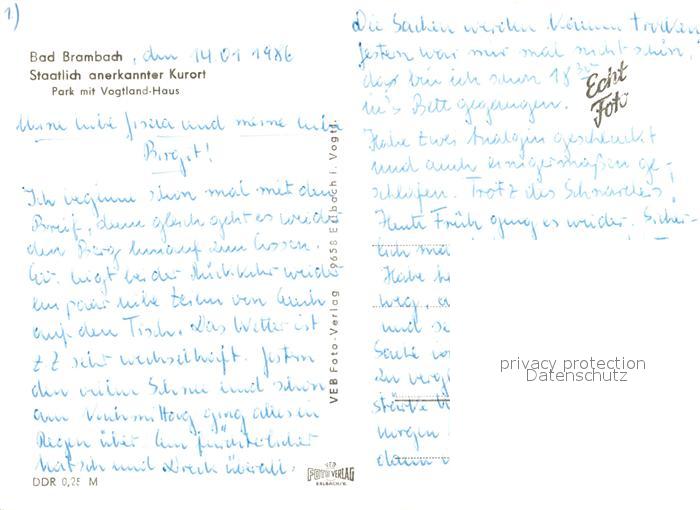 1)
Bad Brambach, den 14.01 1986
Staatlich anerkannter Kurort
Park mit Vogtland-Haus
Meine liebe Gisela und meine liebe
Birgit!
Ich beginne schon mal mit dem
Brief, denn gleich geht es wieder
den Berg hinauf zum Essen.
liegt bei der Rückkehr wieder
ein paar liebe Zeilen von Euch
auf dem Tisch. Das Wetter ist
z Z sehr wechselhaft. Gestern
den vielen Schnee und schon
am Nachmittag ging alles in
Regen über. Ein fürchterlicher
Matsch und Dreck überall.
DDR 0,25 M
VEB Foto-Verlag 9658 Erlbach i. Vogtl.
VEB
FOTO VERLAG
ERLBACH/V.
Die Sachen werden kaum trocken
Gestern war mir mal nicht schön,
da bin ich schon 18 30
in's Bett gegangen.
Echt
Foto
Habe zwei Analgin geschluckt
und auch einigermaßen ge-
schlafen. Trotz des Schnarchens,
Heute Früh ging es wieder. Sicher-
lich
Habe
weg,
und
Sache
zu
morgen
dann
privacy protection
Datenschutz